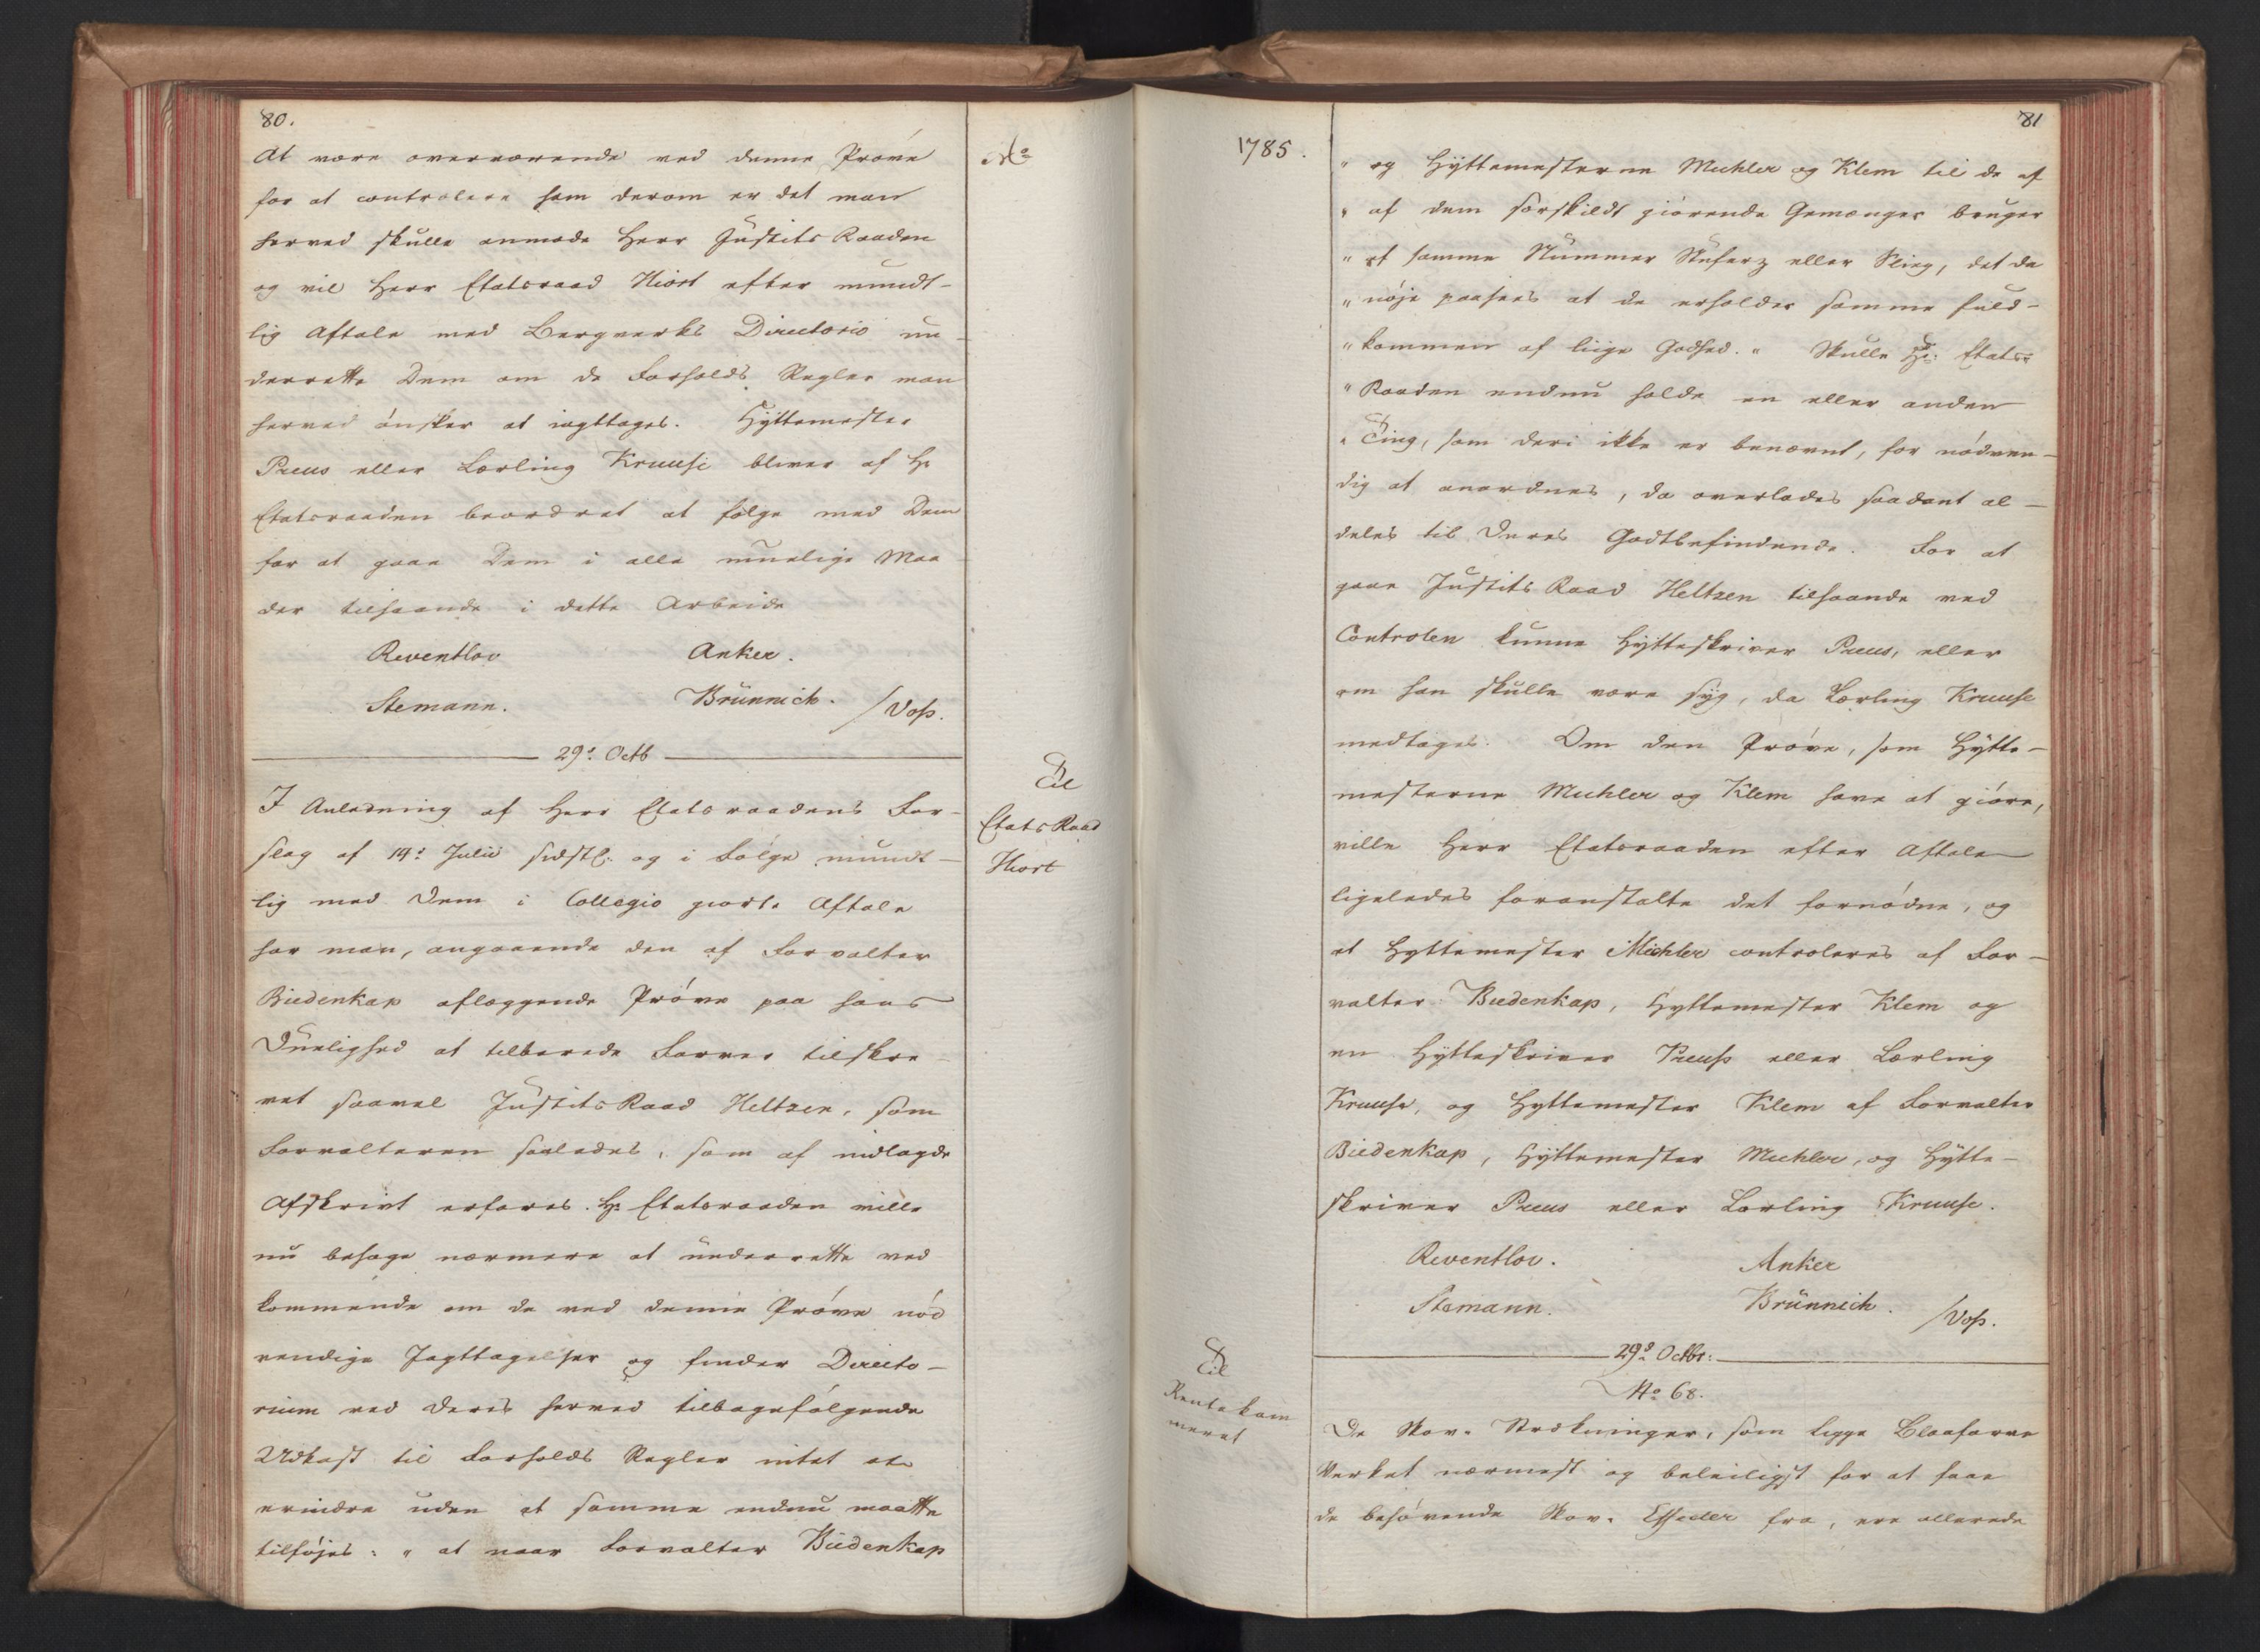 80.
At være overværende ved denne Prøve
for at controlere ham derom er det man
herved skulle anmode Herr Justits Raaden
og vil Herr Etatsraad Hiort efter mundt-
lig Aftale med Bergverks Directorio un-
derrette Dem om de Forholds Regler man
herved ønsker at iagttages. Hyttemester
Preus eller Lærling Kruuse bliver af Hr
Etatsraaden beordret at følge med Dem
for at gaae Dem i alle muelige Maa-
der tilhaande i dette Arbeide
Reventlov Anker.
Stemann. Brünnich. /Voss.
29de Octb
Til
Etats Raad
Hiort
I Anledning af Herr Etatsraadens For-
slag af 14de Julii sidstl: og i Følge mundt-
lig med Dem i Collegio giort Aftale
har man, angaaende den af Forvalter
Biedenkap aflæggende Prøve paa hans
Duelighed at tilberede Farver tilskre-
vet saavel Justits Raad Heltzen, som
Forvalteren saaledes, som af indlagde
Afskrivt erfares. Hr Etatsraaden ville
nu behage nærmere at underrette ved
kommende om de ved denne Prøve nød
vendige Jagttagelser og finder Directo-
rium ved Deres herved tilbagefølgende
Udkast til Forholds Regler intet at
erindre uden at samme endnu maatte
tilføjes: " at naar Forvalter Biedenkap
No
1785.
81
" og Hyttemesterne Muhler og Klem til de af
" af dem særskildt giørende Gemænger bruger
" et samme Nummer Stuferz eller Slieg, det da
" nøje paasees at de erholder samme fuld-
" kommen af liige Godhed. " Skulle Hr: Etats-
" Raaden endnu holde en eller anden
" Ting, som deri ikke er benævnt, for nødven-
dig at anordnes, da overlades saadant al-
deles til Deres Godtbefindende. For at
gaae Justits Raad Heltzen tilhaande ved
Controlen kunne Hytteskriver Preus, eller
om han skulle være syg, da Lærling Kruuse
medtages. Om den Prøve, som Hytte-
mesterne Muhler og Klem have at giøre,
ville Herr Etatsraaden efter Aftale
ligeledes foranstalte det fornødne, og
at Hyttemester Michler controleres af For-
valter Biedenkap, Hyttemester Klem og
en Hytteskriver Preuss eller Lærling
Kruuse, og Hyttemester Klem af Forvalter
Biedenkap, Hyttemester Muhler, og Hytte-
skriver Preus eller Lærling Kruuse.
Reventlov. Anker
Stemann. Brünnich. /Voss.
29de Octbr:
No 68.
Til
Rentekam
meret
De Skov-Strækninger, som ligge Blaafarve
Verket nærmest og beleiligst for at faae
de behøvende Skov-Effecter fra, ere allerede